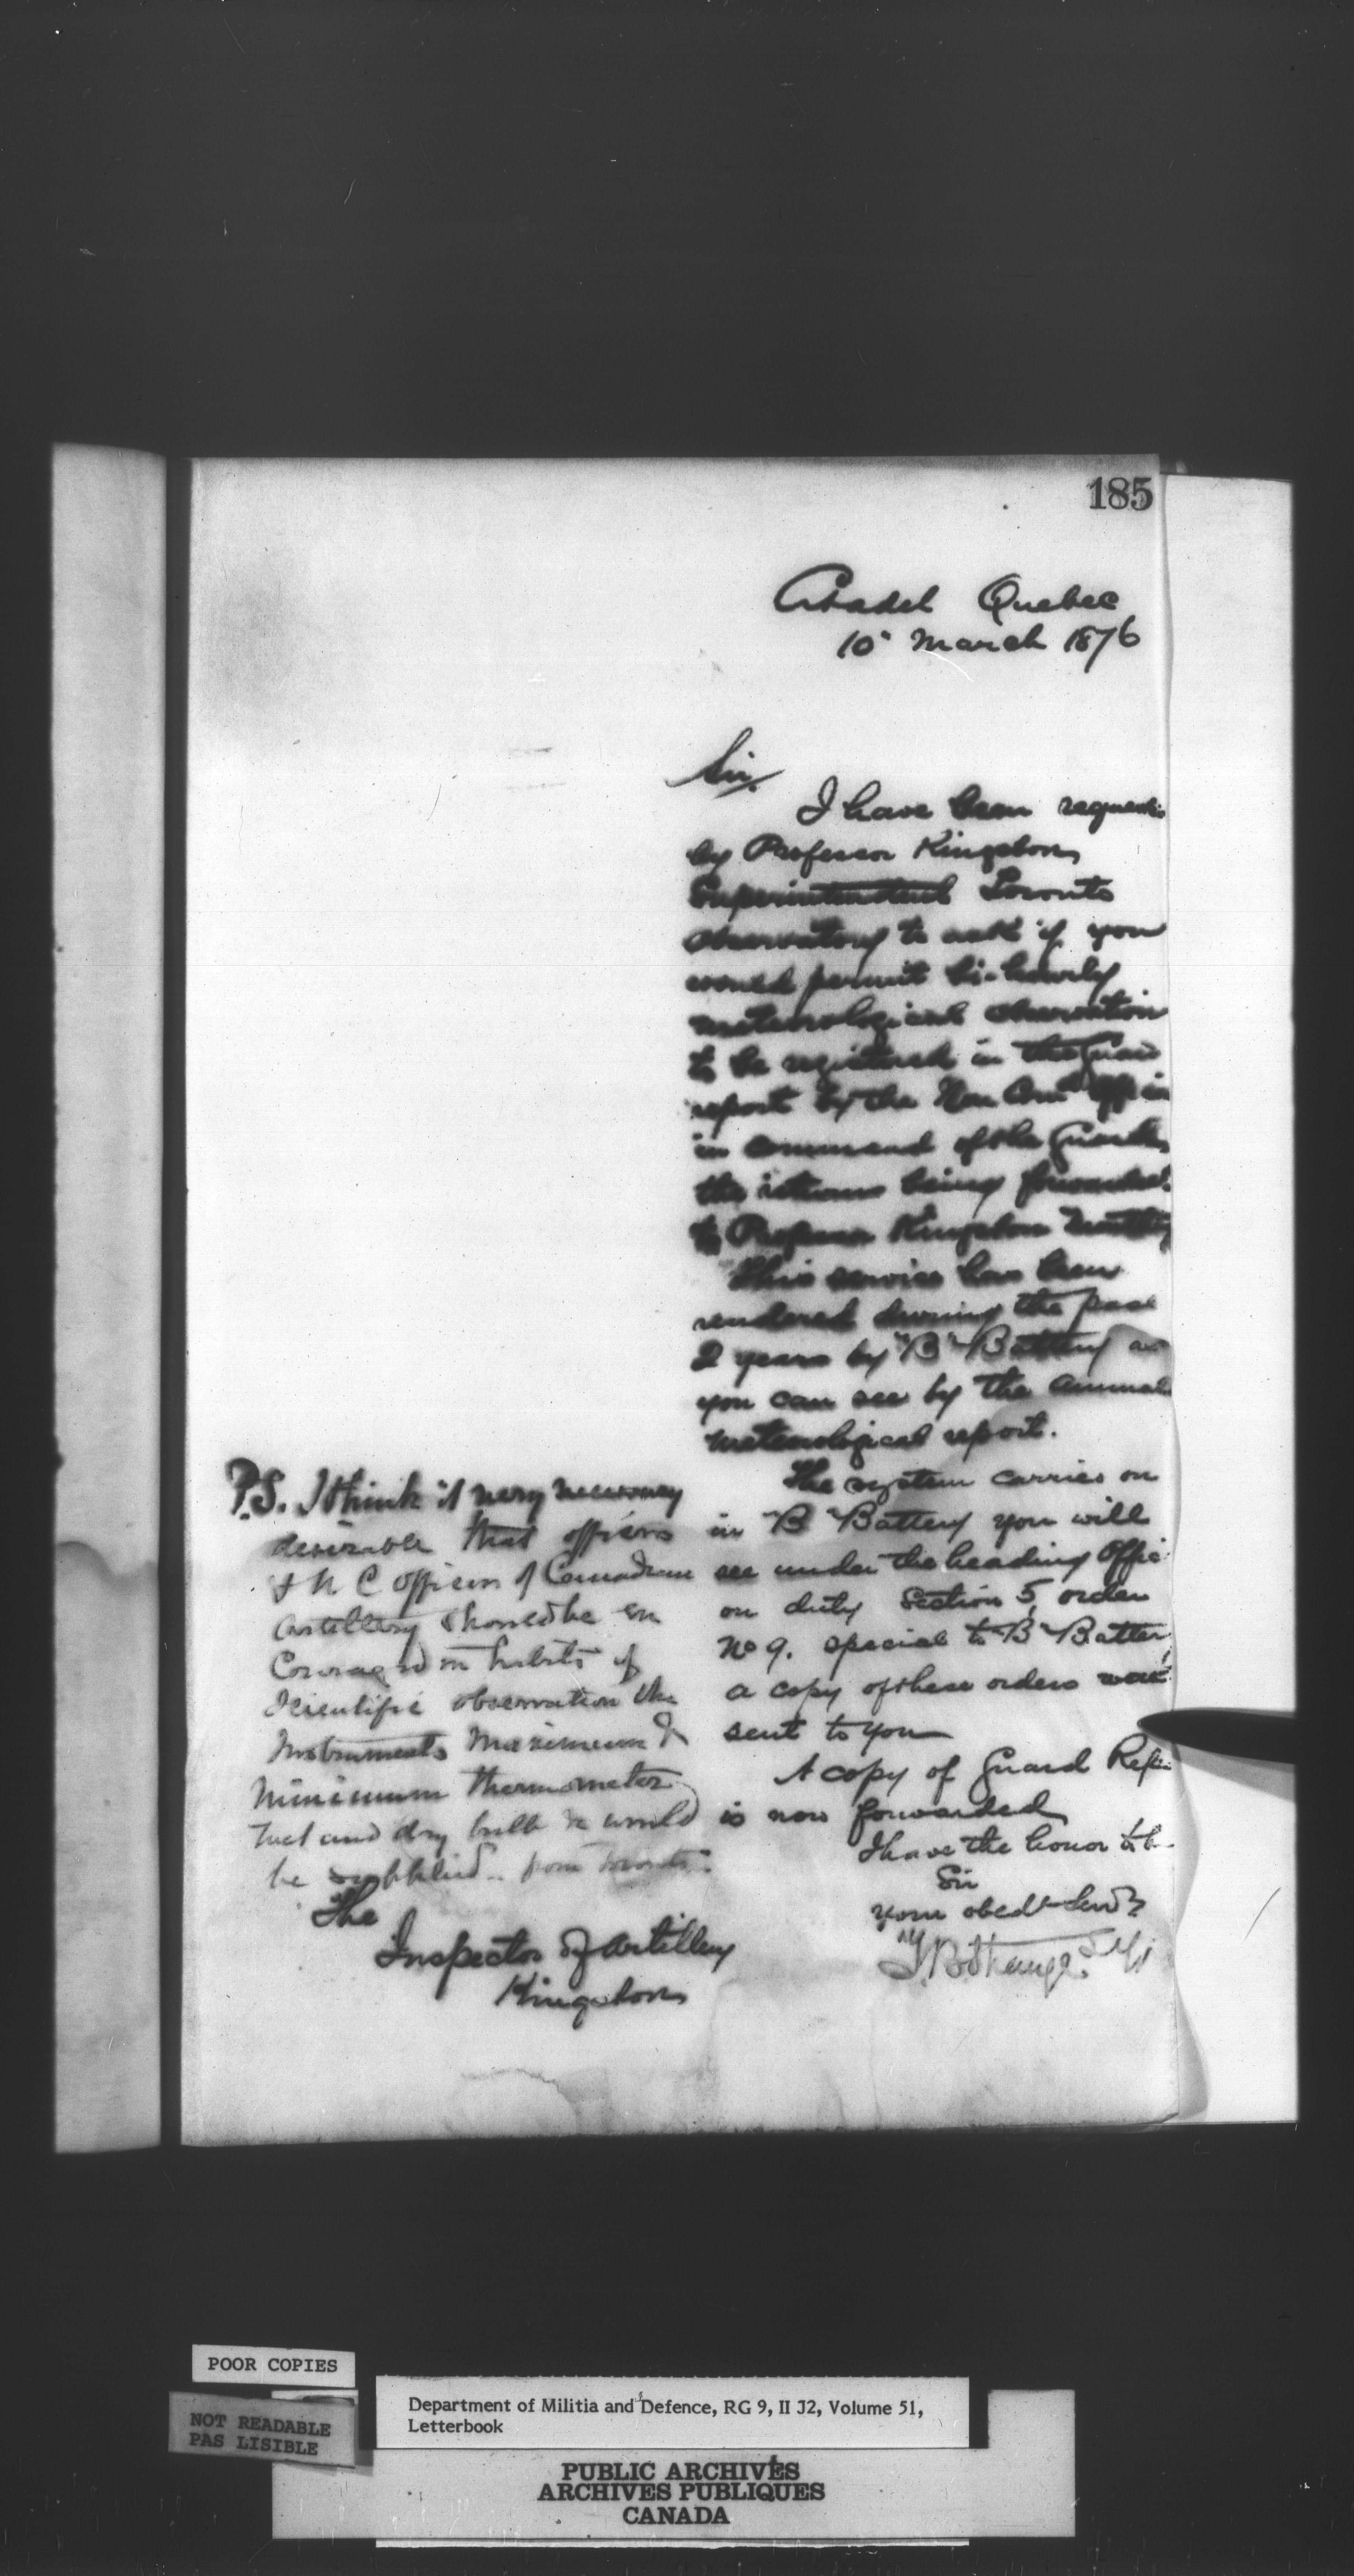 185
Citadel Quebec
10" March 1876
Sir,
I have been requested
by Professor Kingston,
Superintendent Toronto
observatory to ask if you
would permit bi-hourly
meteorological observation
to be registered in the Guard
report by the Non Com Officer
in command of the Guards
the returns being forwarded
to Professor Kingston monthly
This service has been
rendered during the past
2 years by "B" Battery as
you can see by the annual
meteorological report.
The system carries on
in "B" Battery you will
see under the heading Offic
on duty Section 5, order
No 9. special to "B" Batter
a copy of these orders
sent to you
A copy of Guard Repo
is now forwarded
I have the honor to be
Sir
your obedt Servt
T.B. Strange
P.S. I think it very necessary
desirable that officers
& N C officers of Canadian
Artillery should be en
couraged in habits of
Scientific observation the
Instruments Maximum &
Minimum thermometer
wet and dry bulb &c would
be supplied from Toronto.
The
Inspector of Artillery
Kingston
POOR COPIES
NOT READABLE
PAS LISIBLE
Department of Militia and Defence, RG 9, II J2, Volume 51,
Letterbook
PUBLIC ARCHIVES
ARCHIVES PUBLIQUES
CANADA